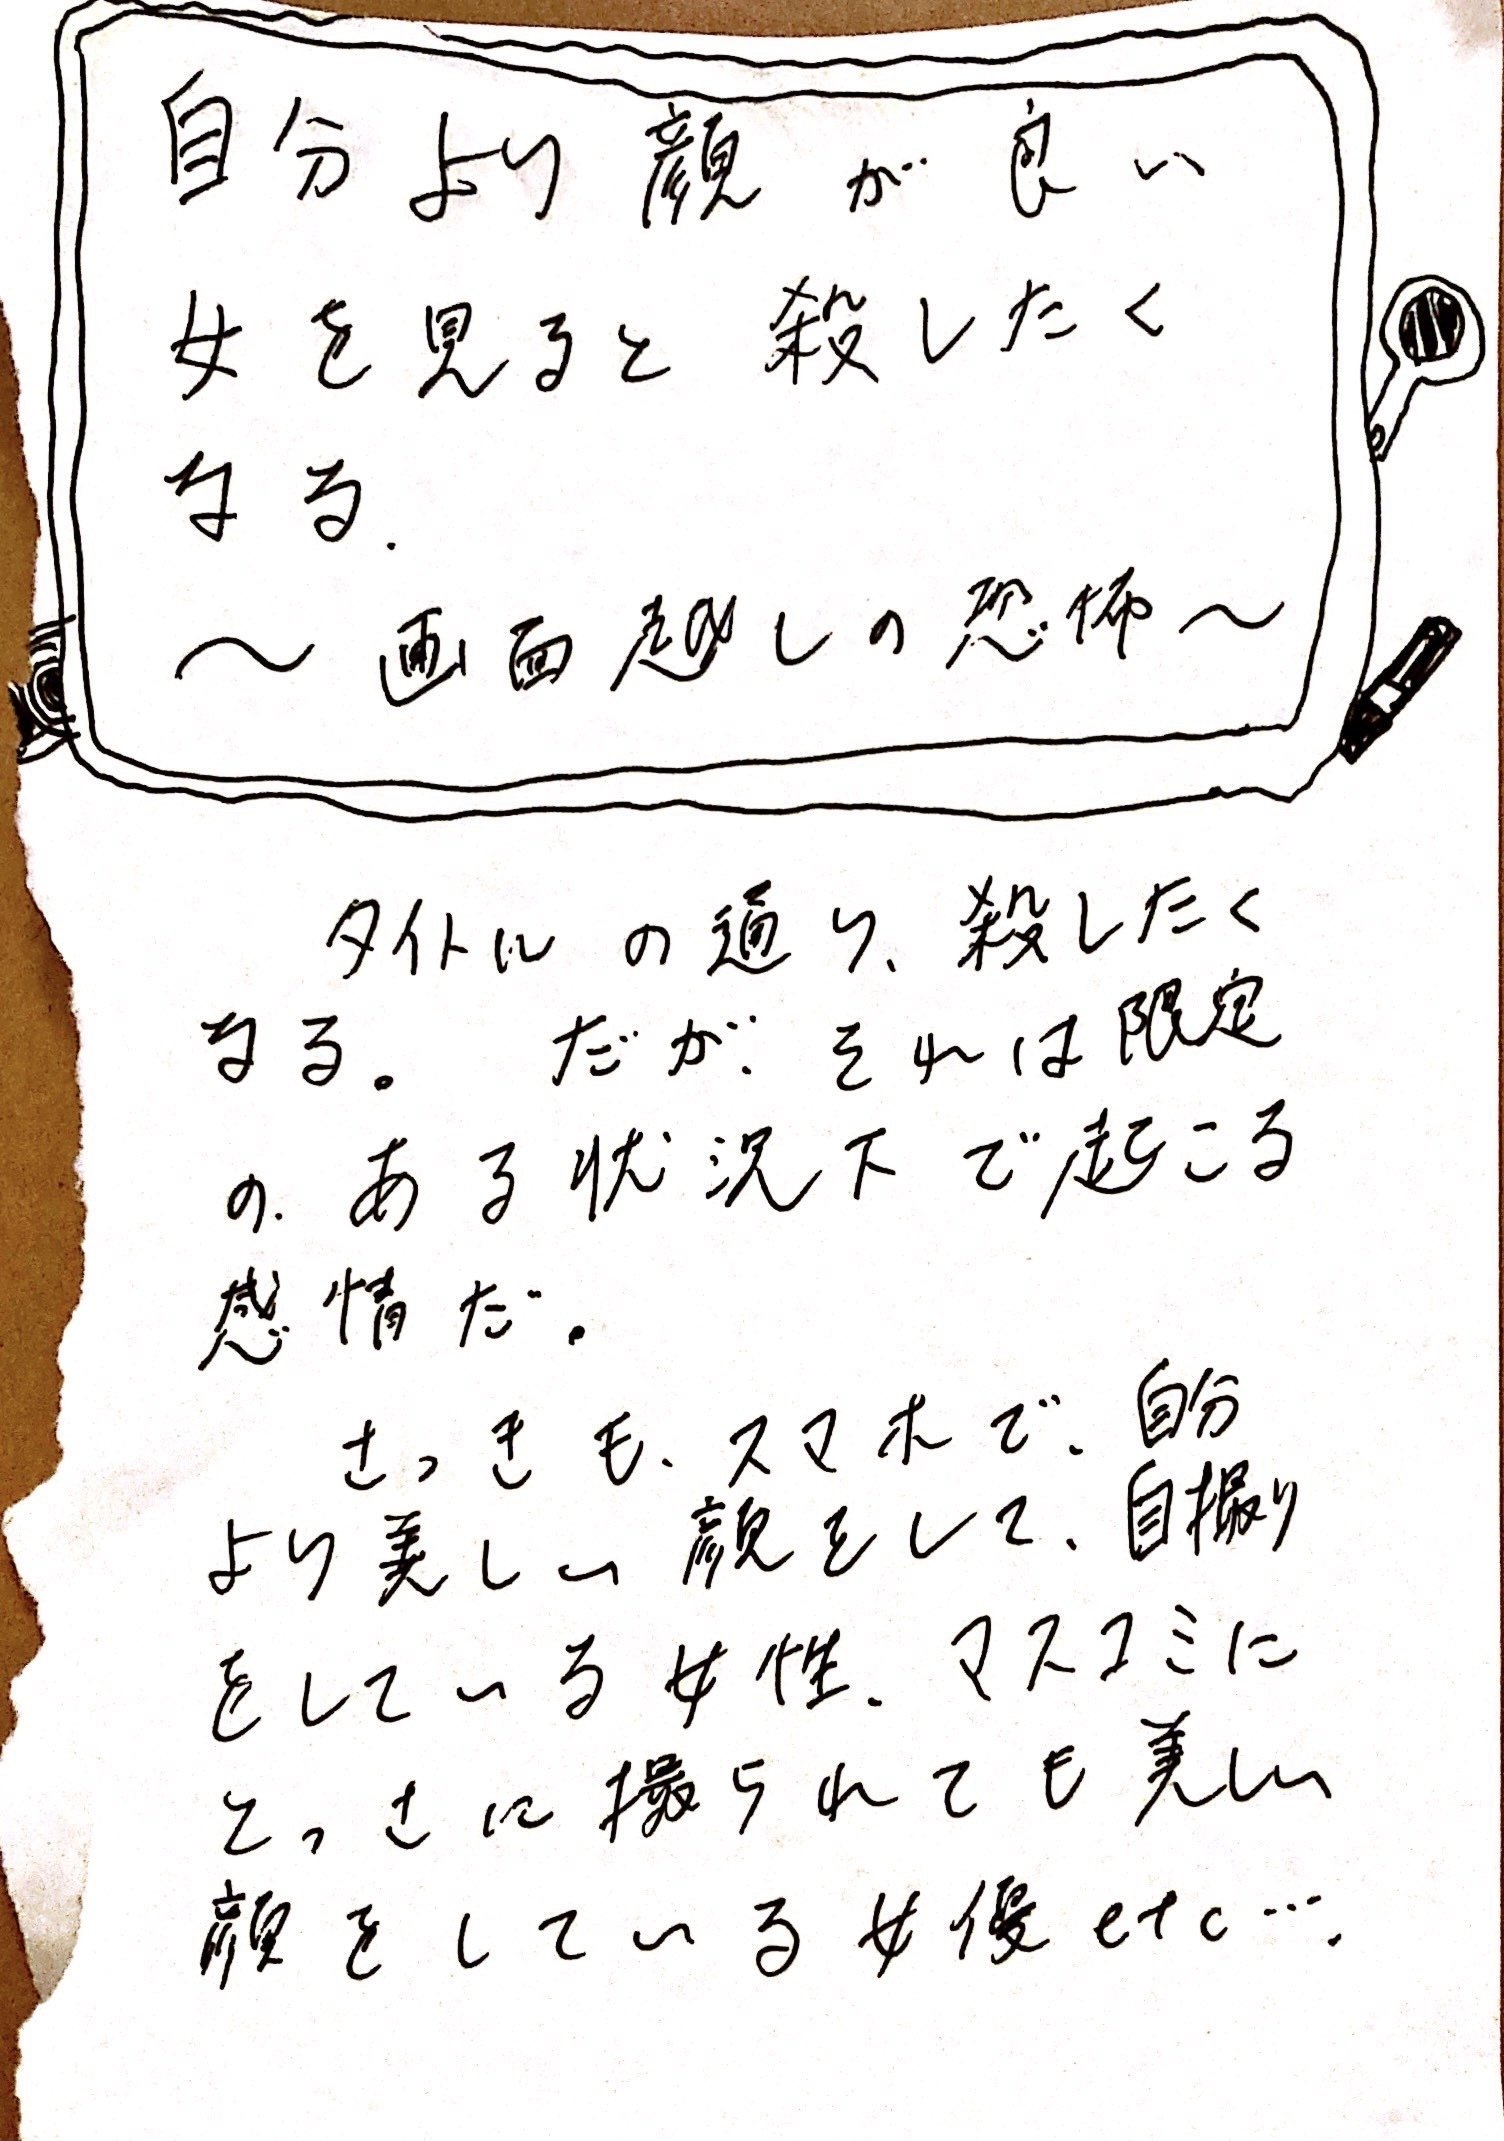 自分より顔が良い
女を見ると殺したく
なる.
～画面越しの恐怖～
タイトルの通り、殺したく
なる。だが、それは限定
の、ある状況下で起こる
感情だ。
さっきも、スマホで、自分
より美しい顔をして、自撮り
をしている女性、マスコミに
とっさに撮られても美しい
顔をしている女優etc….